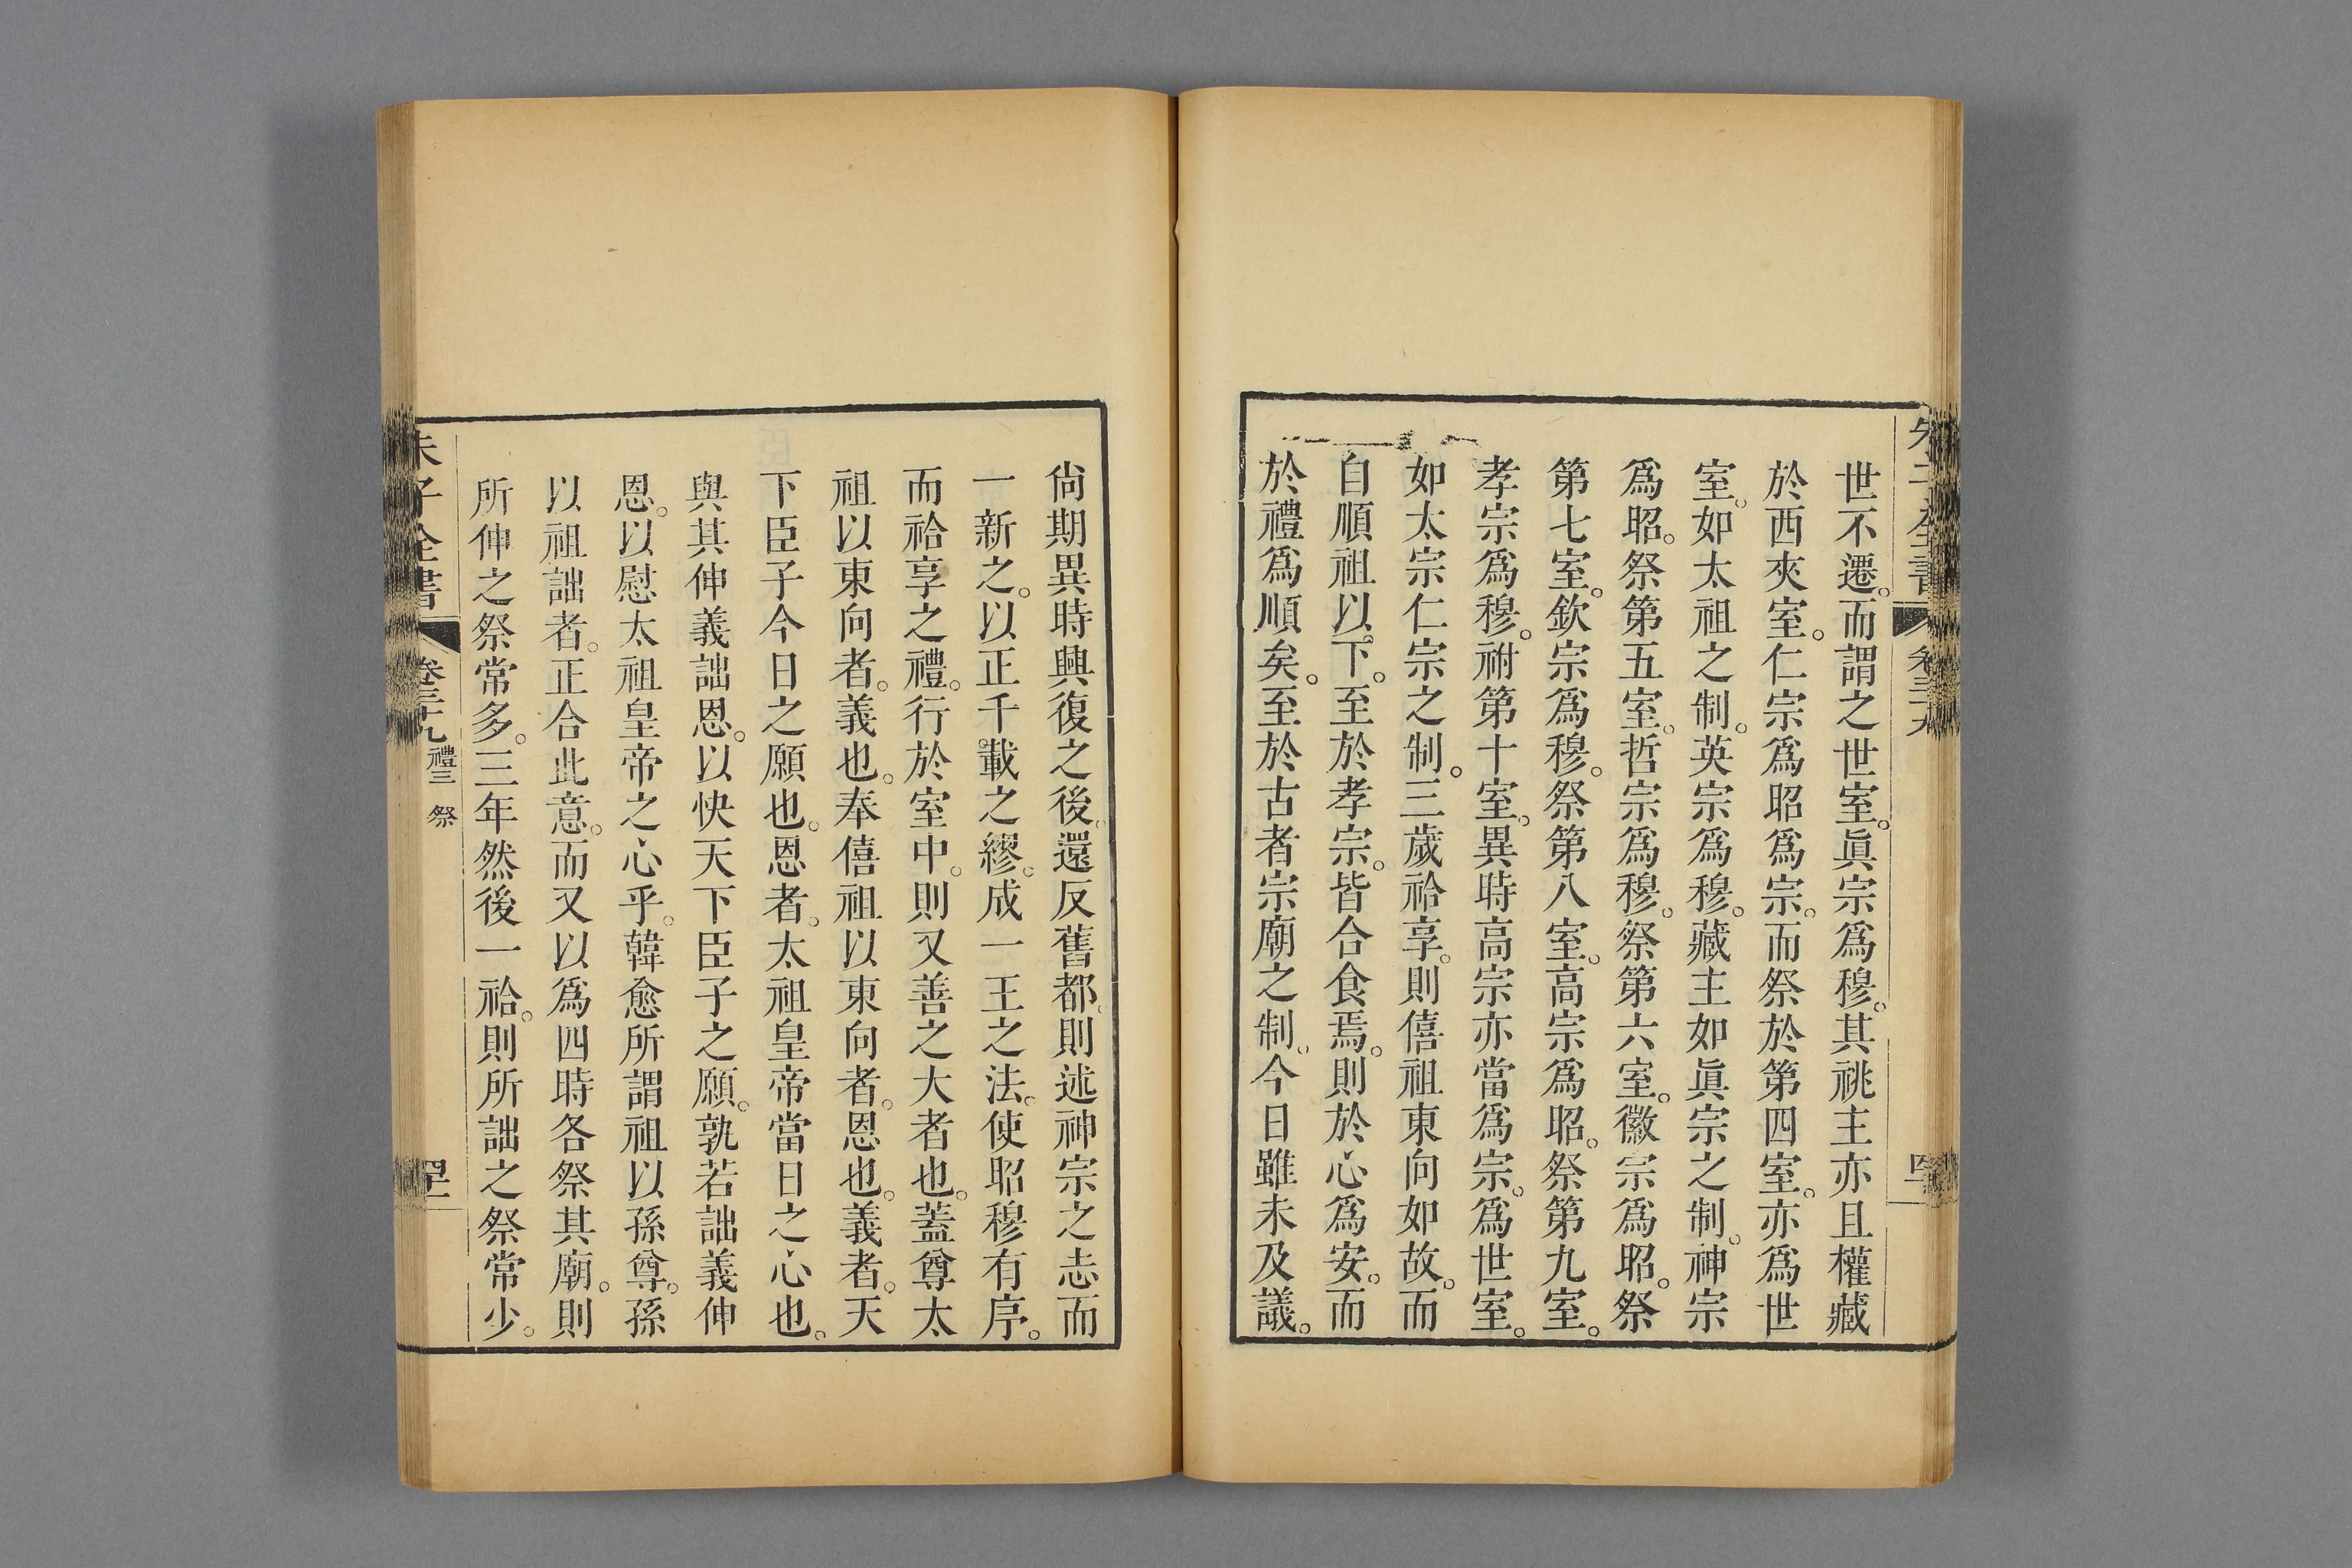 世不遷。而謂之世室。眞宗爲穆。其祧主亦且權藏
於西夾室。仁宗爲昭爲宗。而祭於第四室。亦爲世
室。如太祖之制。英宗爲穆。藏主如眞宗之制。神宗
爲昭。祭第五室。哲宗爲穆。祭第六室。徽宗爲昭。祭
第七室。欽宗爲穆。祭第八室。高宗爲昭。祭第九室。
孝宗爲穆。祔第十室。異時高宗亦當爲宗。爲世室。
如太宗仁宗之制。三歲祫享。則僖祖東向如故。而
自順祖以下。至於孝宗。皆合食焉。則於心爲安。而
於禮爲順矣。至於古者宗廟之制。今日雖未及議。
尙期異時興復之後。還反舊都。則述神宗之志而
一新之。以正千載之繆。成一王之法。使昭穆有序。
而祫享之禮。行於室中。則又善之大者也。蓋尊太
祖以東向者。義也。奉僖祖以東向者。恩也。義者。天
下臣子今日之願也。恩者。太祖皇帝當日之心也。
與其伸義詘恩。以快天下臣子之願。孰若詘義伸
恩。以慰太祖皇帝之心乎。韓愈所謂祖以孫尊。孫
以祖詘者。正合此意。而又以爲四時各祭其廟。則
所伸之祭常多。三年然後一祫。則所詘之祭常少。
朱子全書 卷三十九 禮三 祭